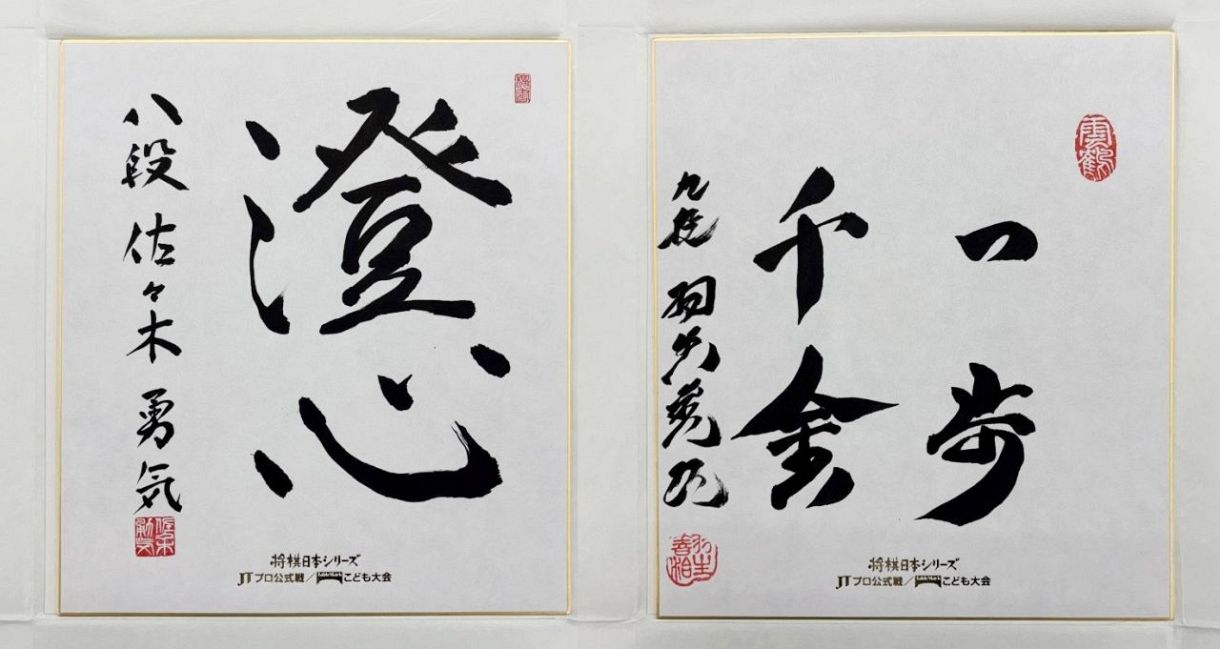 澄心
八段 佐々木 勇気
将棋日本シリーズ
JTプロ公式戦／こども大会
雲鶴
一歩
千金
九段 羽生善治
羽生善治
将棋日本シリーズ
JTプロ公式戦／こども大会